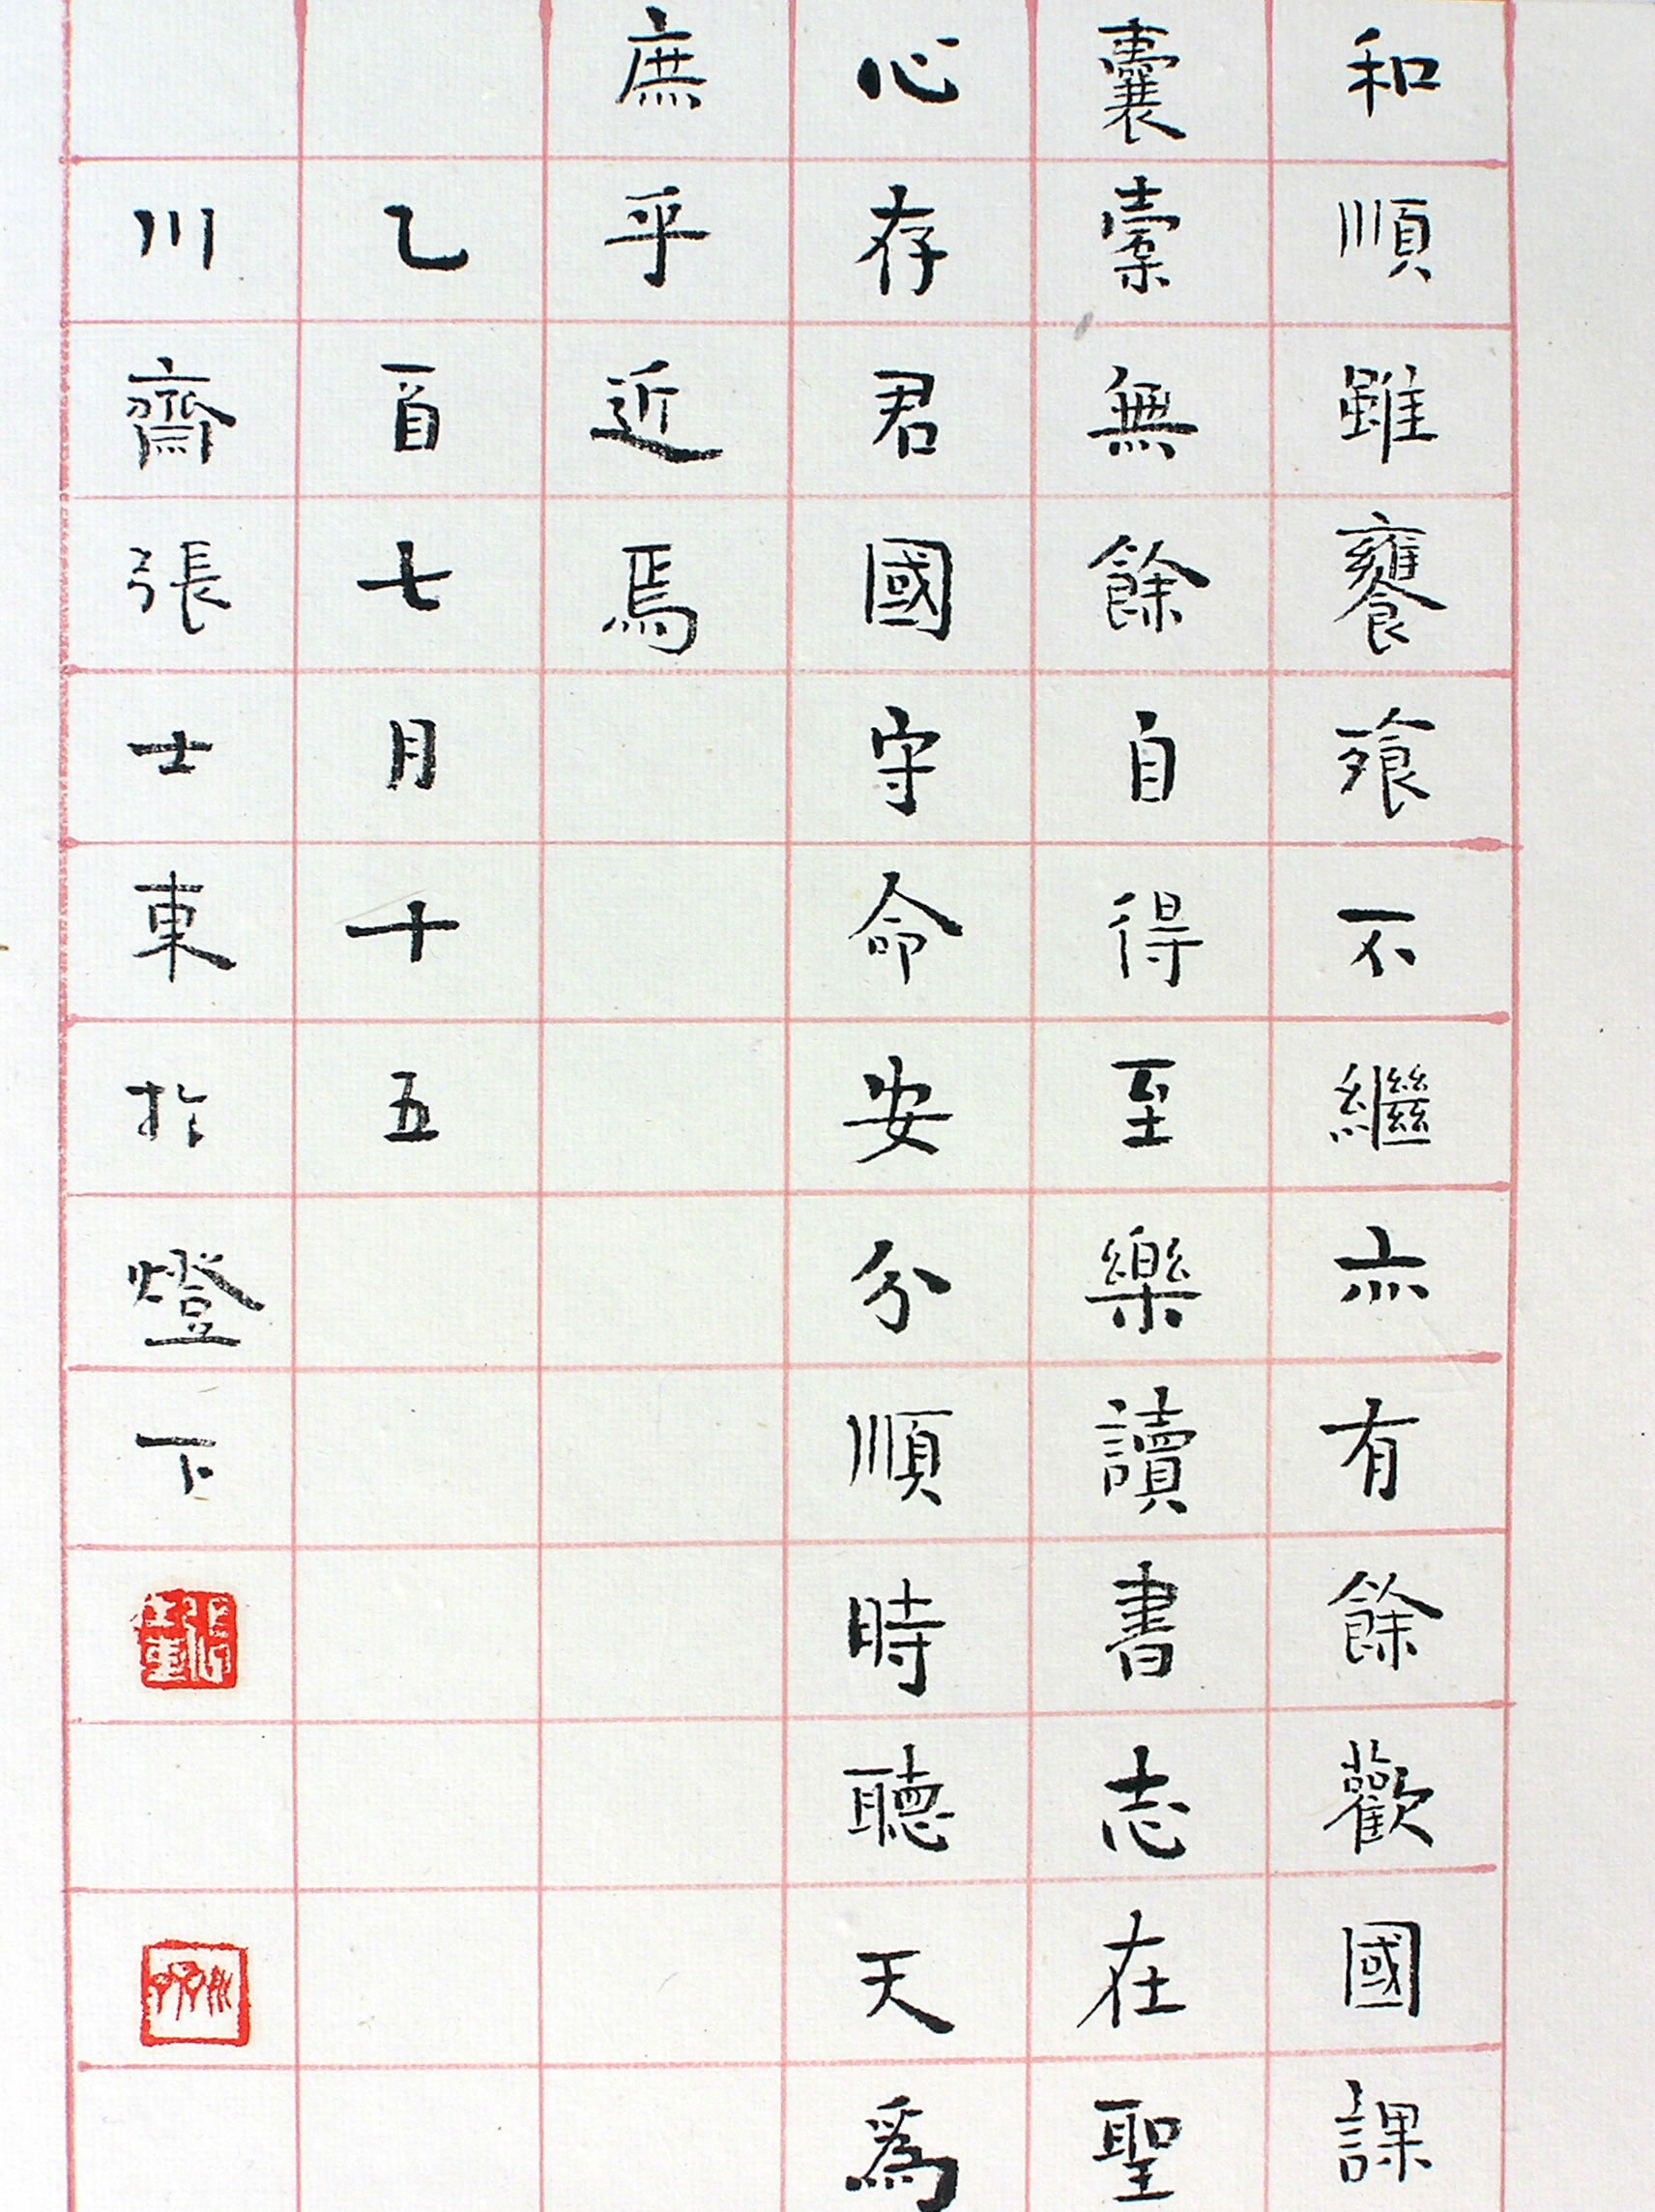 和順雖饔飱不繼亦有餘歡國課
囊橐無餘自得至樂讀書志在聖
心存君國守命安分順時聽天爲
庶乎近焉
乙酉七月十五
川齋張士東於燈下